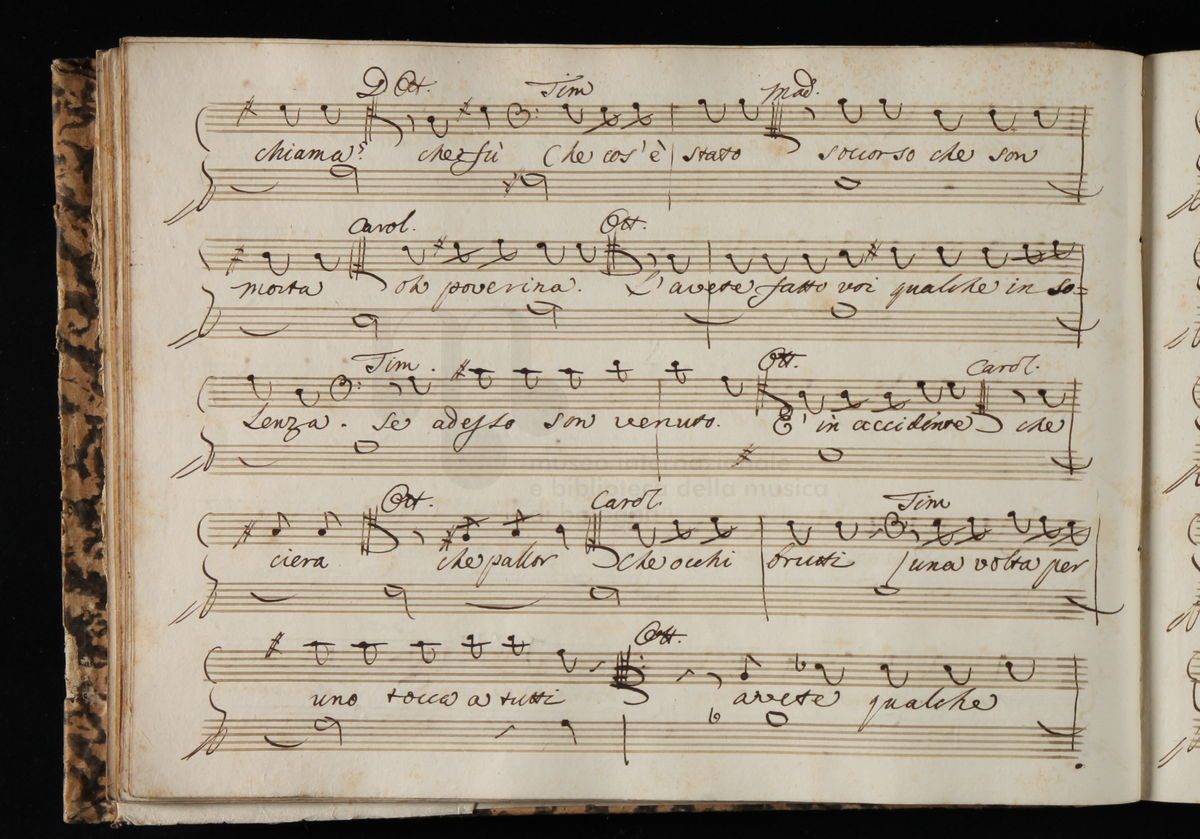 D Ott. Tim Mad.
chiama? che fù Che cos'è stato soccorso che son
Carol. Ott.
morta oh poverina. L'avete fatto voi qualche in so=
Tim. Ott. Carol.
lenza. se adesso son venuto. E' in accidente che
Ott. Carol. Tim
ciera che pallor che occhi brutti una volta per
Ott.
uno tocca a tutti avete qualche
e biblioteca della musica